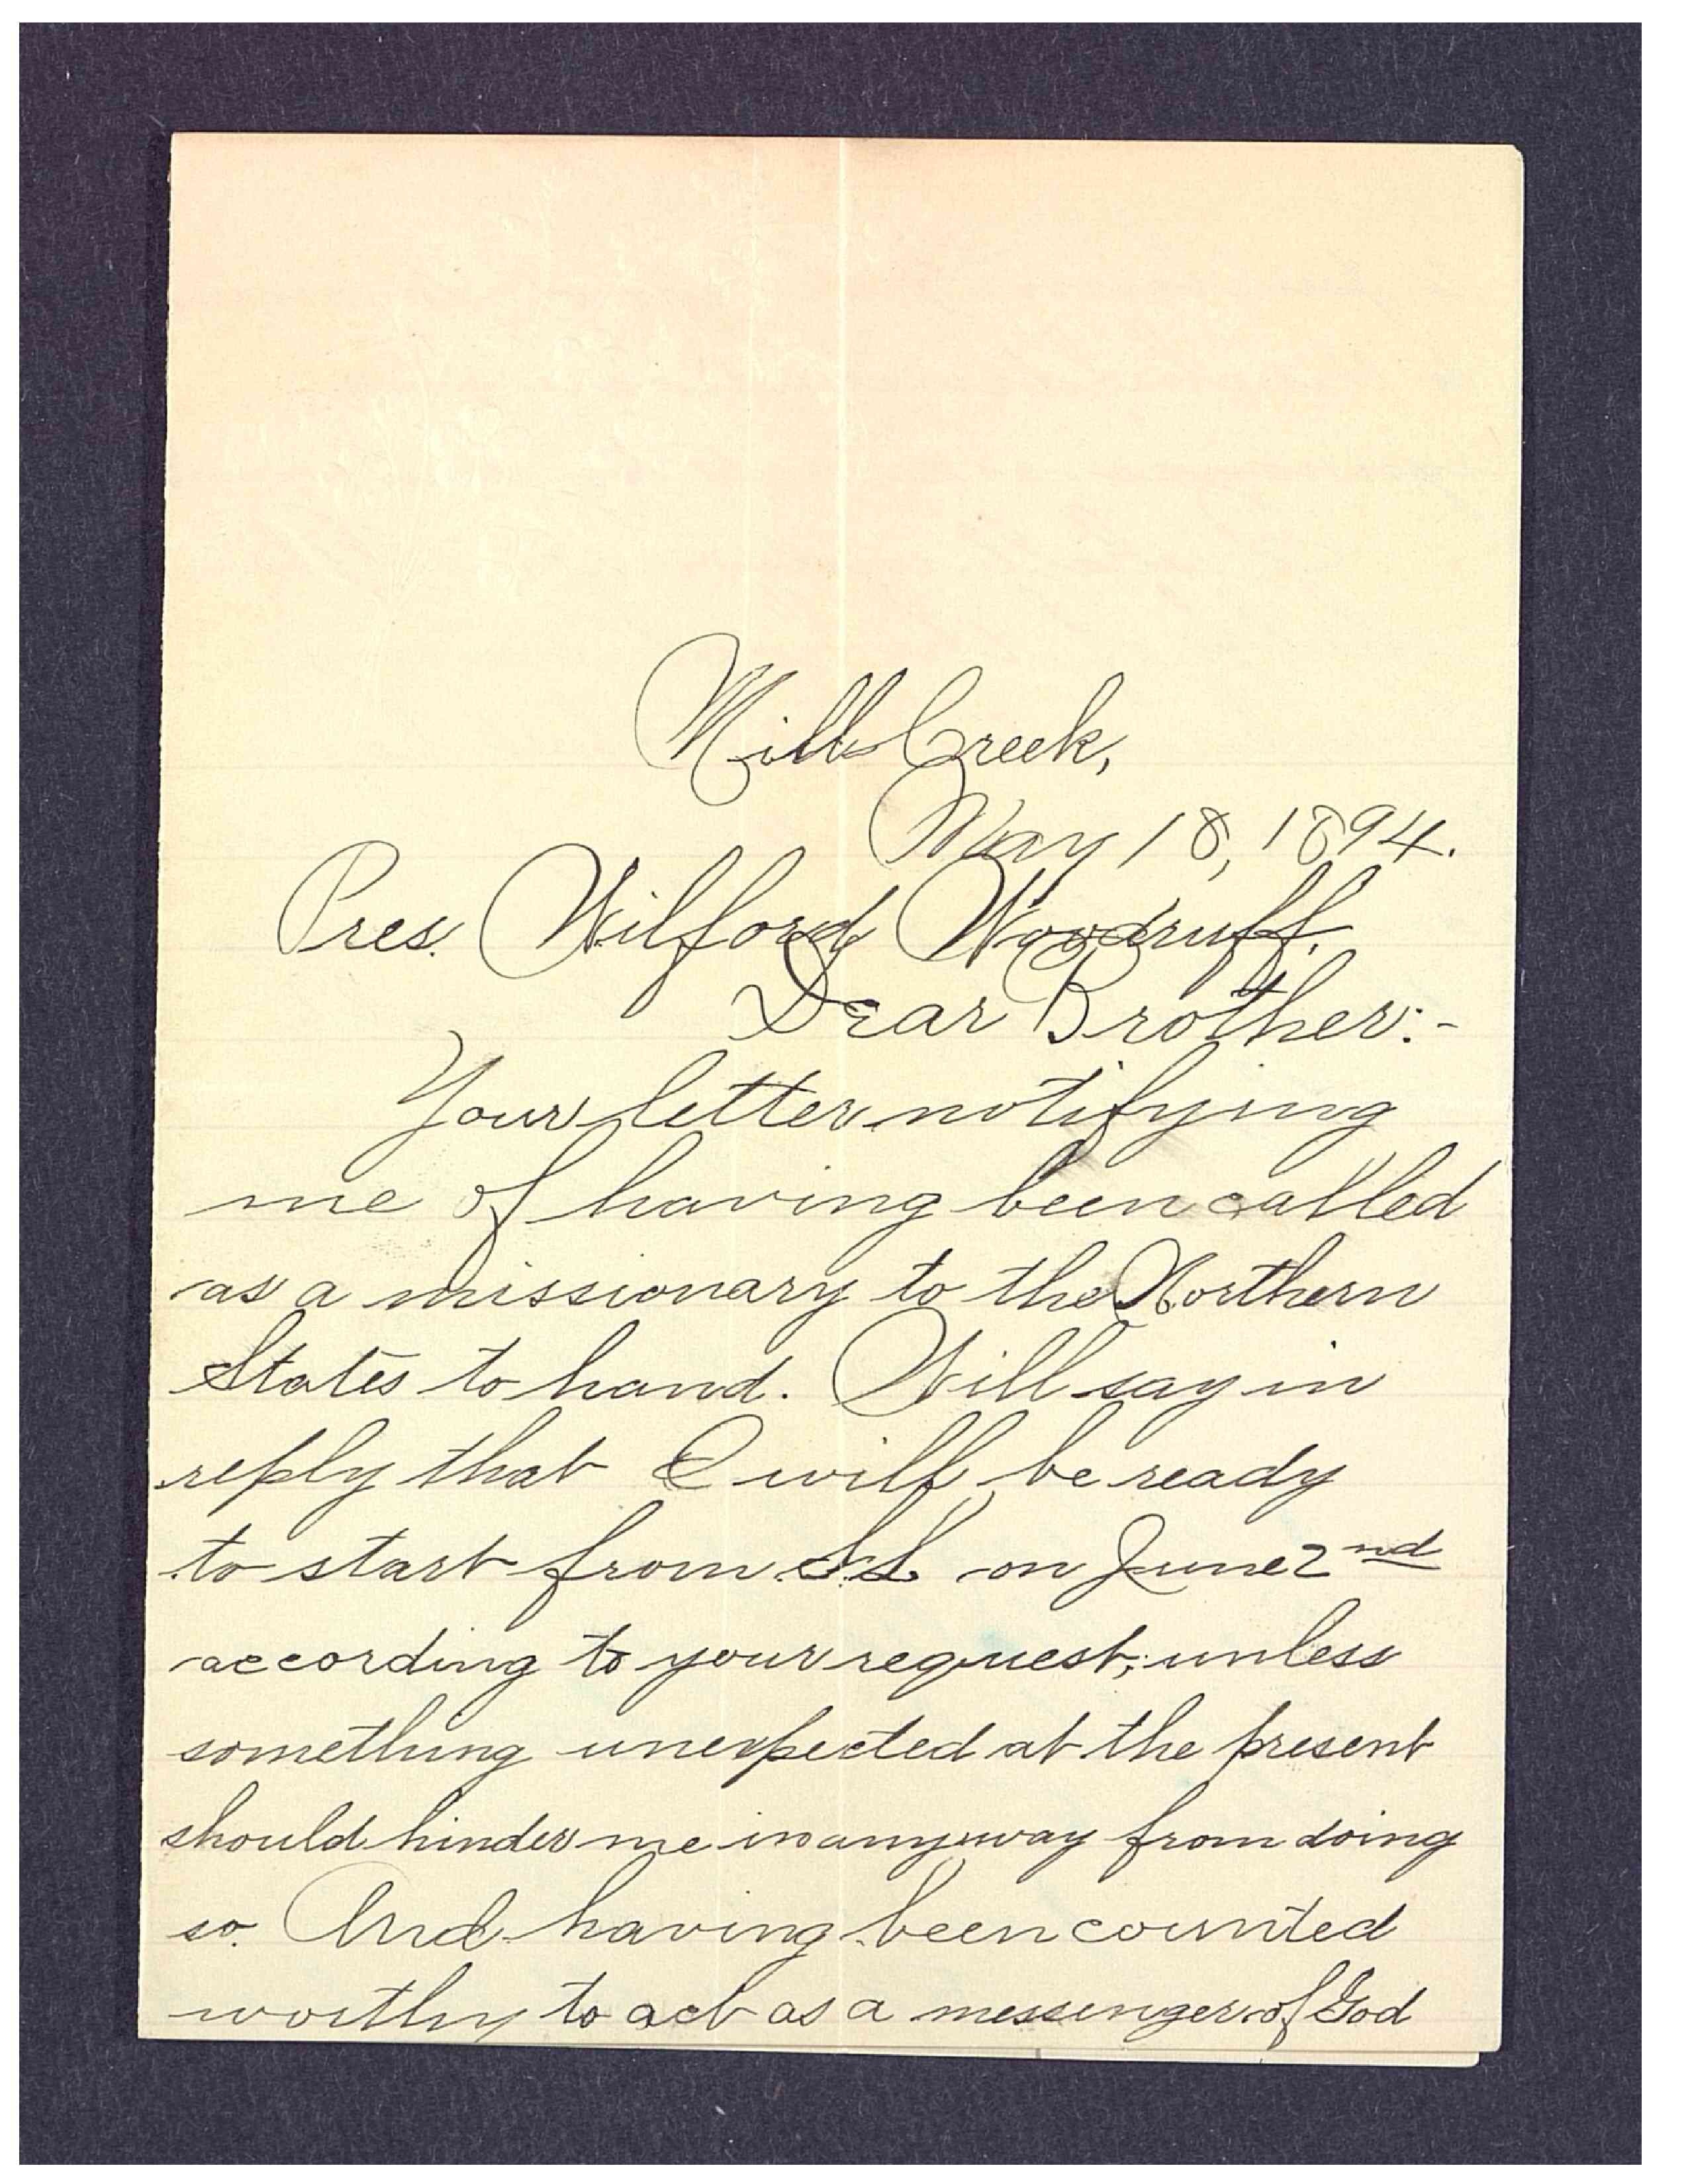 Mill Creek,
May 18, 1894.
Pres. Wilford Woodruff.
Dear Brother:-
Your letter notifying
me of having been called
as a missionary to the Northern
States to hand. Will say in
reply that I will be ready
to start from S.L. on June 2nd
according to your request; unless
something unexpected at the present
should hinder me in anyway from doing
so. And having been counted
worthy to act as a messenger of God